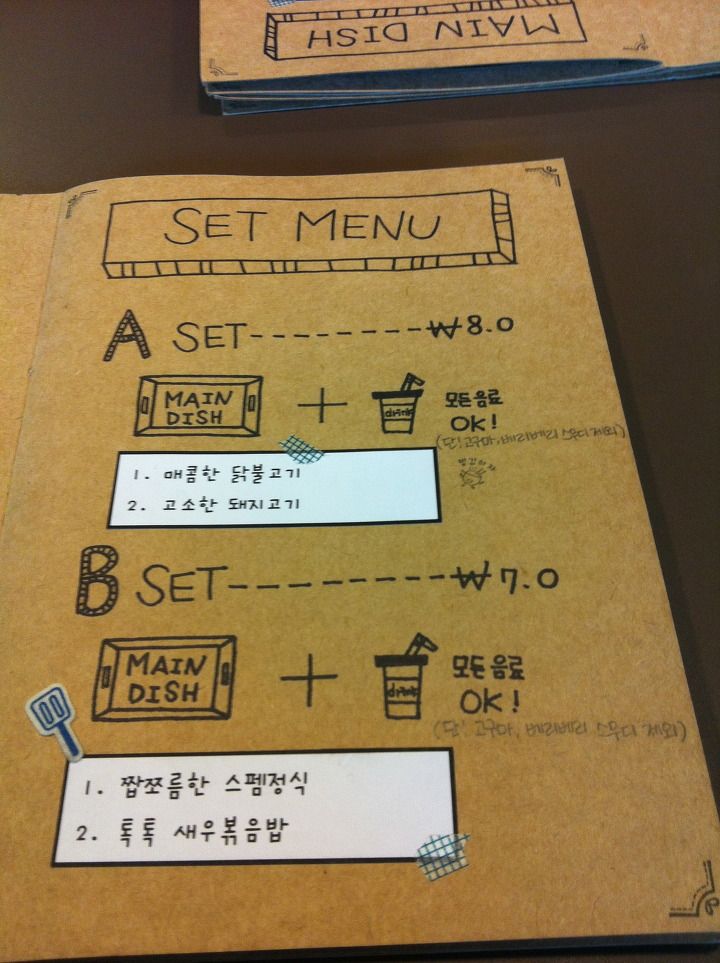 MAIN DISH
SET MENU
A SET--------₩8.0
MAIN DISH + drink 모든음료 OK!
(단! 고구마, 베리베리 스무디 제외)
1. 매콤한 닭불고기
2. 고소한 돼지고기
B SET---------₩7.0
MAIN DISH + drink 모든음료 OK!
(단! 고구마, 베리베리 스무디 제외)
1. 짭쪼름한 스펨정식
2. 톡톡 새우볶음밥